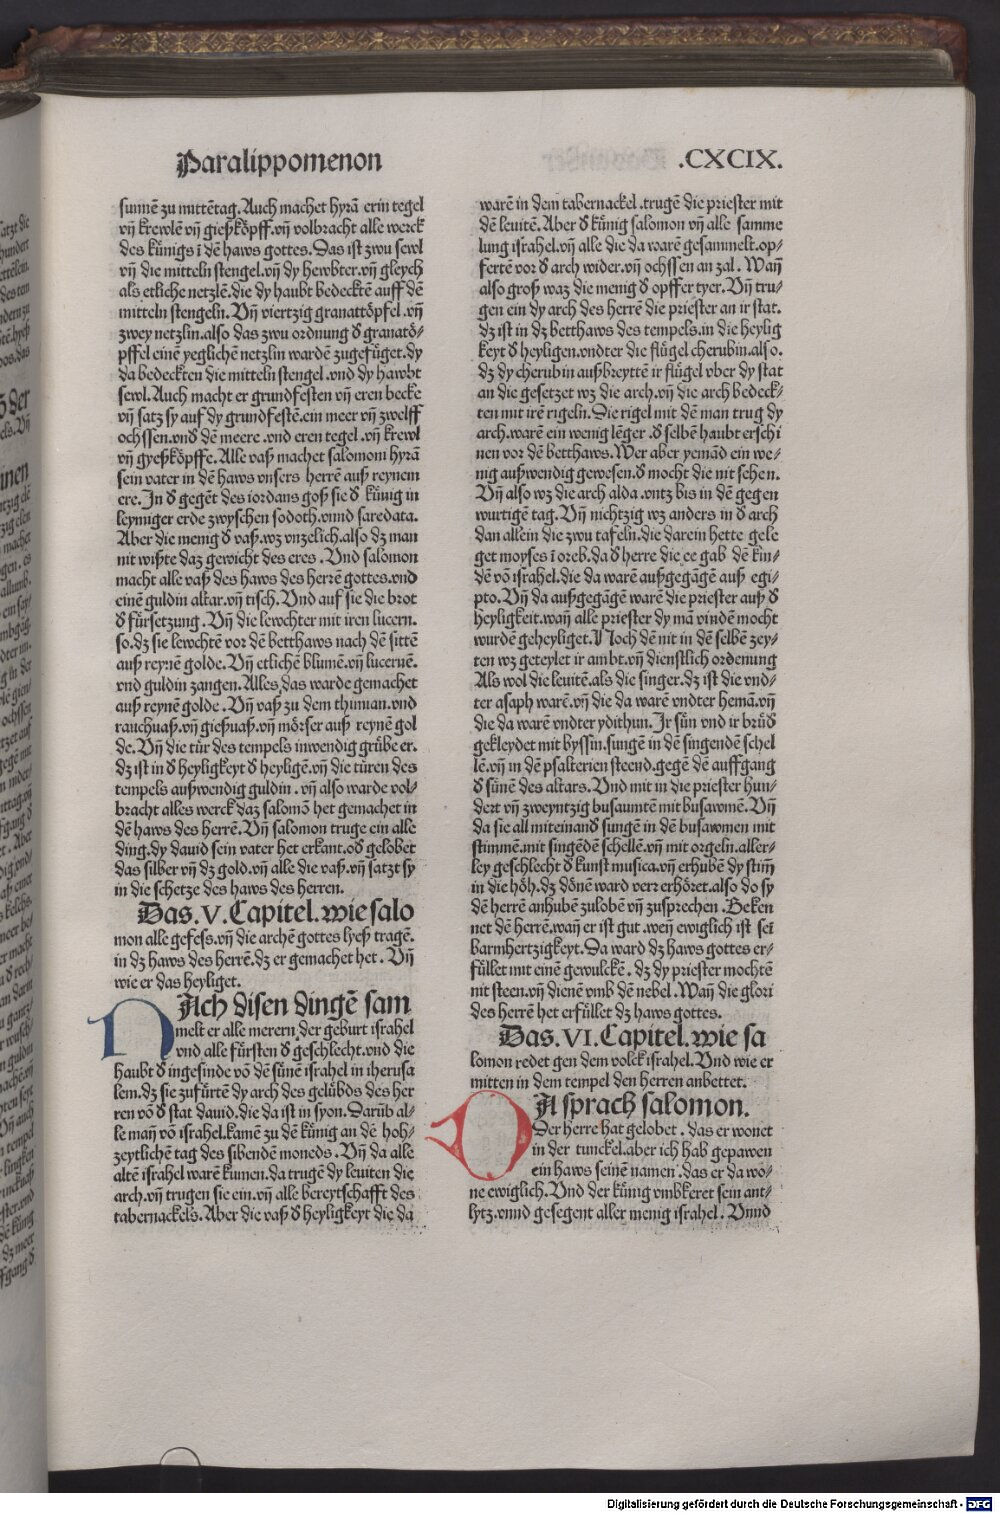 Paralippomenon
.CXCIX.
sunnē zu mittētag. Auch machet hyrā erin tegel
vñ krewlē vñ gießköpff. vñ volbracht alle werck
des künigs ī dē haws gottes. Das ist zwu sewl
vñ die mitteln stengel. vñ dy hewbter. vñ gleych
als etliche netzlē. die dy haubt bedecktē auff dē
mitteln stengeln. Vñ viertzig granattöpfel. vñ
zwey netzlin. also das zwu ordnung d granatö-
pffel einē yeglichē netzlin wardē zugefüget. dy
da bedeckten die mitteln stengel. vnd dy hawbt
sewl. Auch macht er grundfesten vñ eren becke
vñ satz sy auf dy grundfestē. ein meer vñ zwelff
ochssen. vnd dē meere. vnd eren tegel. vñ krewl
vñ gyeßköpffe. Alle vaß machet salomoni hyrā
sein vater in dē haws vnsers herrē auß reynem
ere. In d gegēt des iordans goß sie d künig in
leymiger erde zwyschen sodoth. vnnd saredata.
Aber die menig d vaß. wz vnzelich. also dz man
nit wißte daz gewicht des eres. Vnd salomon
macht alle vaß des haws des herrē gottes. vnd
einē guldin altar. vñ tisch. Vnd auf sie die brot
d fürsetzung. Vñ die lewchter mit iren lucern.
so. dz sie lewchtē vor dē betthaws nach dē sittē
auß reynē golde. Vñ etlichē blumē. vñ lucernē.
vnd guldin zangen. Alles das warde gemachet
auß reynē golde. Vñ vaß zu dem thimian. vnd
rauchuaß. vñ gießuaß. vñ mörser auß reynē gol
de. Vñ die tür des tempels inwendig grübe er.
dz ist in d heyligkeyt d heyligē. vñ die türen des
tempels außwendig guldin. vñ also warde vol-
bracht alles werck daz salomō het gemachet in
dē haws des herrē. Vñ salomon truge ein alle
ding. dy dauid sein vater het erkant. od gelobet
das silber vñ dz gold. vñ alle die vaß. vñ satzt sy
in die schetze des haws des herren.
Das. V. Capitel. wie salo
mon alle gefess. vñ die archē gottes lyeß tragē.
in dz haws des herrē. dz er gemachet het. Vñ
wie er das heyliget.
NAch disen dingē sam
melt er alle merern der geburt israhel
vnd alle fürsten d geschlecht. vnd die
haubt d ingesinde vō dē sünē israhel in iherusa
lem. dz sie zufürtē dy arch des gelübds des her
ren vō d stat dauid. die da ist in syon. Darūb al-
le mañ vō israhel. kamē zu dē künig an dē hoh-
zeytlichē tag des sibendē moneds. Vñ da alle
altē israhel warē kumen. da trugē dy leuiten die
arch. vñ trugen sie ein. vñ alle bereytschafft des
tabernackels. Aber die vaß d heyligkeyt die da
warē in dem tabernackel. trugē die priester mit
dē leuitē. Aber d künig salomon vñ alle samme
lung israhel. vñ alle die da warē gesammelt. op-
fertē vor d arch wider. vñ ochssen an zal. Wañ
also groß waz die menig d opffer tyer. Vñ tru-
gen ein dy arch des herrē die priester an ir stat.
dz ist in dz betthaws des tempels. in die heylig
keyt d heyligen. vndter die flügel cherubin. also.
dz dy cherubin außbreyttē ir flügel vber dy stat
an die gesetzet wz die arch. vñ die arch bedeck-
ten mit irē rigeln. Die rigel mit dē man trug dy
arch. warē ein wenig lēger. d selbē haubt erschi
nen vor dē betthaws. Wer aber yemād ein we-
nig außwendig gewesen. d mocht die nit sehen.
Vñ also wz die arch alda. vntz bis in dē gegen
wurtigē tag. Vñ nichtzig wz anders in d arch
dan allein die zwu tafeln. die darein hette gele
get moyses ī oreb. da d herre die ee gab dē kin-
dē vō israhel. die da warē außgegāgē auß egi-
pto. Vñ da außgegāgē warē die priester auß d
heyligkeit. wañ alle priester dy mā vindē mocht
wurdē geheyliget. Noch dē nit in dē selbē zey-
ten wz geteylet ir ambt. vñ dienstlich ordenung
Als wol die leuitē. als die singer. dz ist die vnd-
ter asaph warē. vñ die da warē vndter hemā. vñ
die da warē vndter ydithun. Ir sün vnd ir brüd
gekleydet mit byssin. sungē in dē singendē schel
lē. vñ in dē psalterien steend. gegē dē auffgang
d sūnē des altars. Vnd mit in die priester hun-
dert vñ zweyntzig busaumtē mit busawmē. Vñ
da sie all miteinand sungē in dē busawmen mit
stimmē. mit singēdē schellē. vñ mit orgeln. aller-
ley geschlecht d kunst musica. vñ erhubē dy stim̄
in die höh. dz dönē ward verr erhöret. also do sy
dē herrē anhubē zulobē vñ zusprechen. Beken
net dē herrē. wañ er ist gut. weñ ewiglich ist sei
barmhertzigkeyt. Da ward dz haws gottes er-
füllet mit einē gewulckē. dz dy priester mochtē
nit steen. vñ dienē vmb dē nebel. Wañ die glori
des herrē het erfüllet dz haws gottes.
Das. VI. Capitel. wie sa
lomon redet gen dem volck israhel. Vnd wie er
mitten in dem tempel den herren anbettet.
DA sprach salomon.
Der herre hat gelobet. das er wonet
in der tunckel. aber ich hab gepawen
ein haws seinē namen. das er da wo-
ne ewiglich. Vnd der künig vmbkeret sein ant-
lytz. vnnd gesegent aller menig israhel. Vnnd
Digitalisierung gefördert durch die Deutsche Forschungsgemeinschaft - DFG